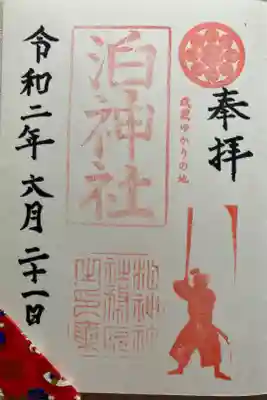 奉拝
武蔵ゆかりの地
泊神社
令和二年六月二十一日